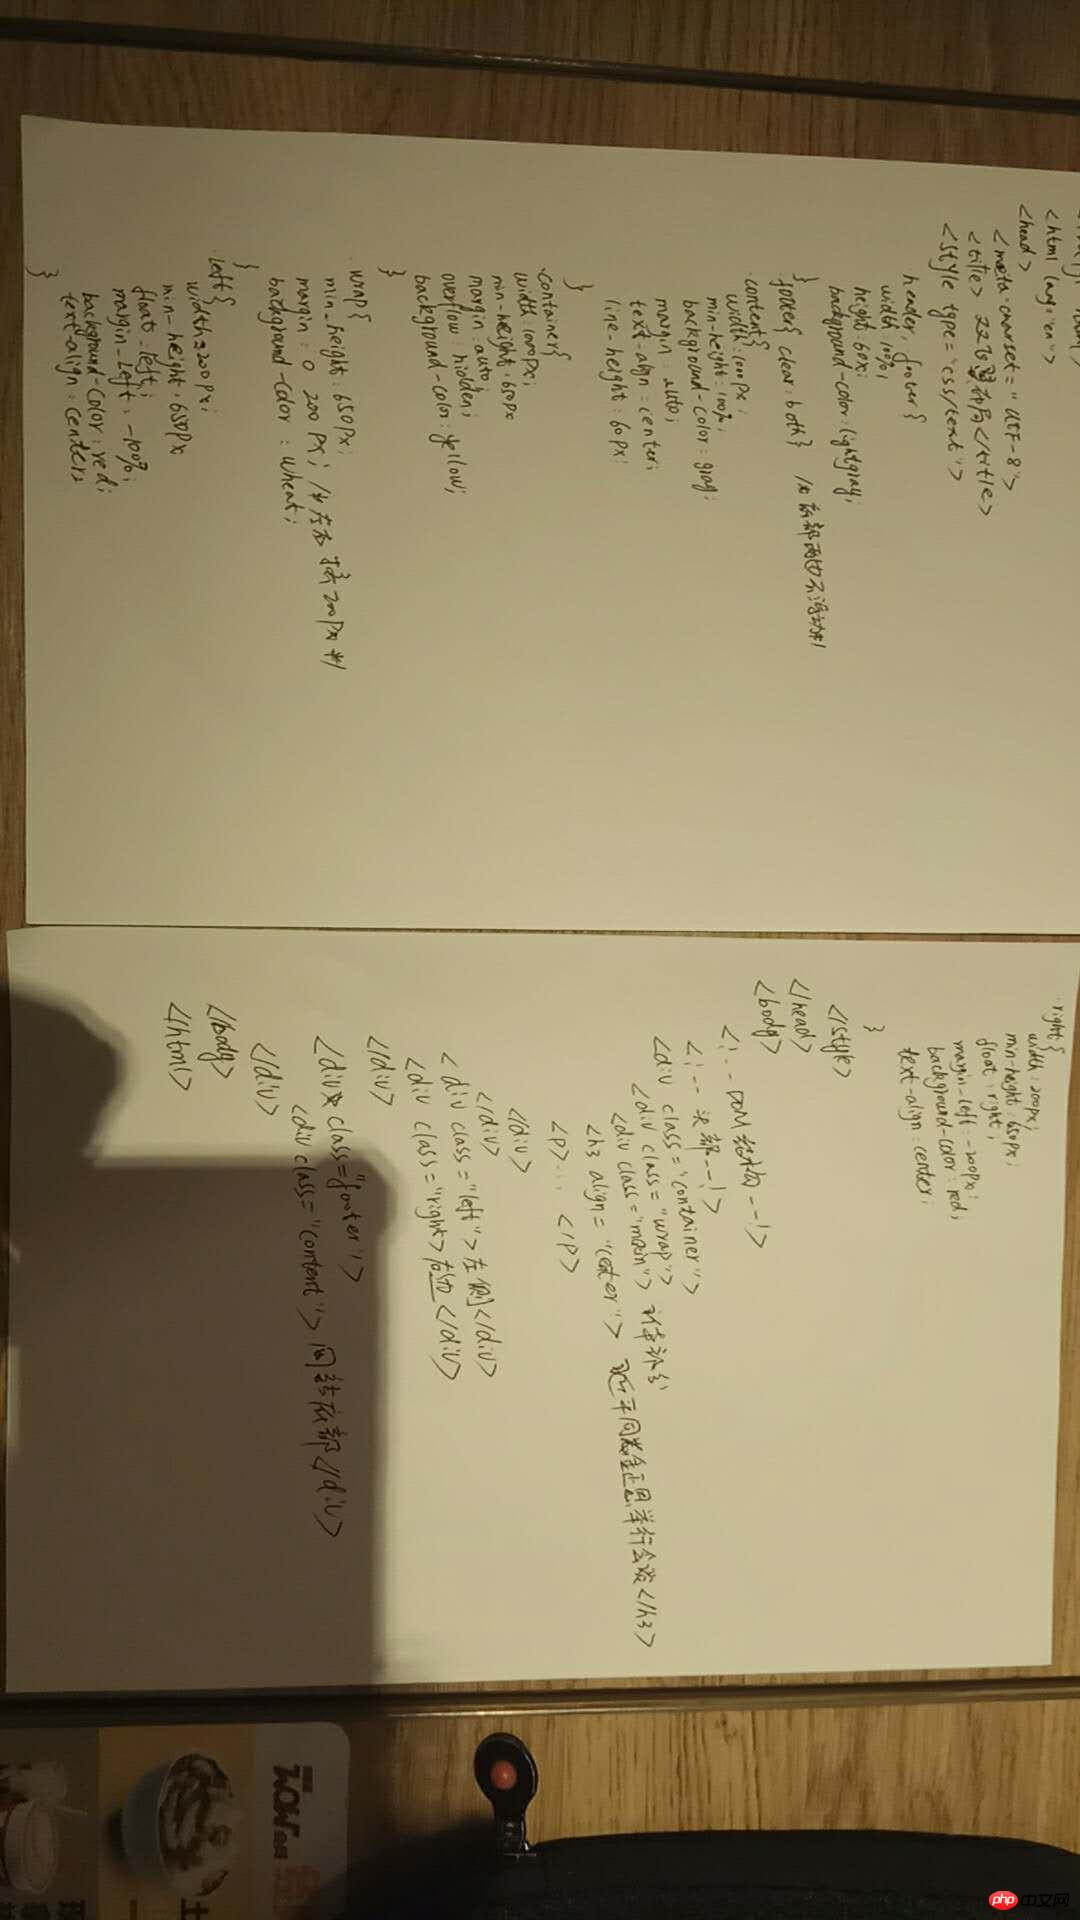 <html lang="en">
<head>
<meta charset="UTF-8">
</title>
<style type="css/text">
header, footer{
width:100%;
height:60px;
background-color:lightgray;
}
footer{ clear:both}
.content{
width:1000px;
min-height:100%;
background-color:gray;
margin:auto;
text-align:center;
line-height:60px;
}
.container{
width:1000px;
min-height:650px
margin:auto;
overflow:hidden;
background-color:yellow;
}
.wrap{
min-height:650px;
margin:0 200px; /*左右 200px*/
background-color:wheat;
}
.left{
width:200px;
min-height:650px
float:left;
margin-left:-100%;
background-color:red;
text-align:center;
}
.right{
width:200px;
min-height:650px;
float:right;
margin-left:-200px;
background-color:red;
text-align:center;
}
</style>
</head>
<body>
<!--DOM结构--!>
<!--头部--!>
<div class="container">
<div class="wrap">
<div class="main">
<h3 align="center"> 举行会谈</h3>
<p>... </p>
</div>
</div>
<div class="left">左侧</div>
<div class="right> </div>
</div>
<div class="footer">
<div class="content"> 底部</div>
</div>
</body>
</html>
TOW
土
一
php中文网